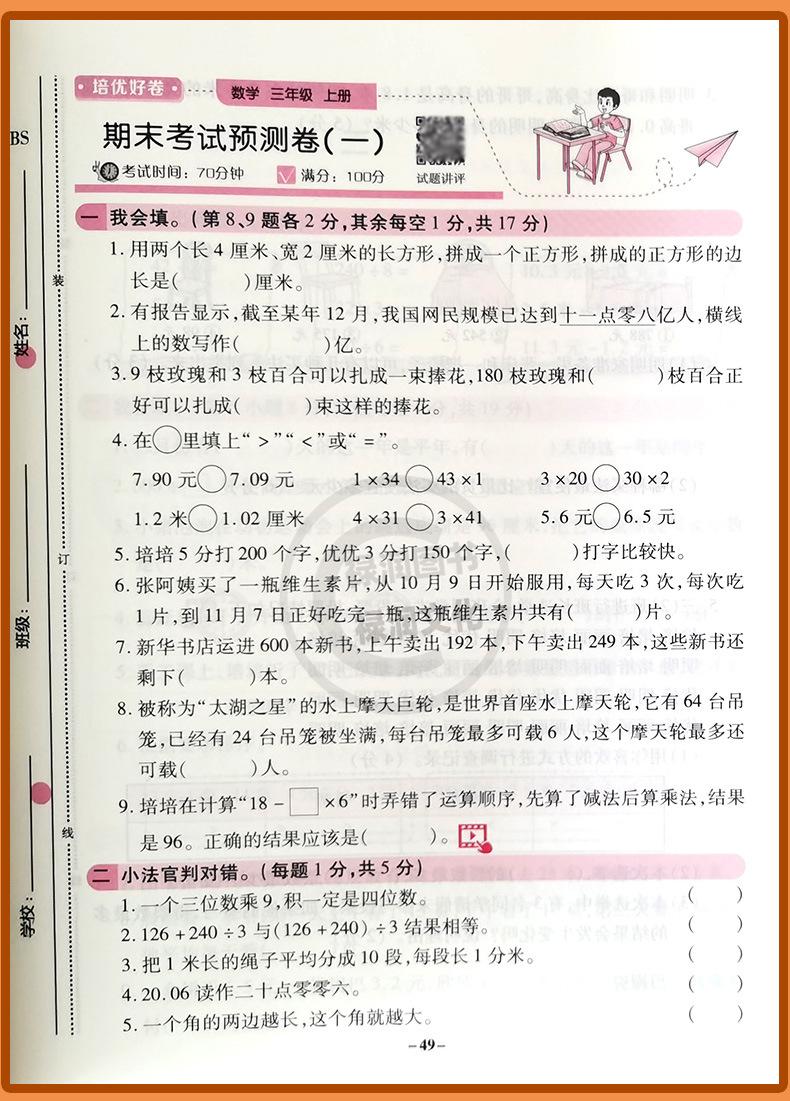 培优好卷
数学 三年级 上册
期末考试预测卷(一)
考试时间:70分钟 满分:100分 试题讲评
BS
姓名:
班级:
学校:
装
订
线
一 我会填。(第8、9题各2分,其余每空1分,共17分)
1. 用两个长4厘米、宽2厘米的长方形,拼成一个正方形,拼成的正方形的边
长是( )厘米。
2. 有报告显示,截至某年12月,我国网民规模已达到十一点零八亿人,横线
上的数写作( )亿。
3. 9枝玫瑰和3枝百合可以扎成一束捧花,180枝玫瑰和( )枝百合正
好可以扎成( )束这样的捧花。
4. 在○里填上“>”“<”或“=”。
7.90元○7.09元 1×34○43×1 3×20○30×2
1.2米○1.02厘米 4×31○3×41 5.6元○6.5元
5. 培培5分打200个字,优优3分打150个字,( )打字比较快。
6. 张阿姨买了一瓶维生素片,从10月9日开始服用,每天吃3次,每次吃
1片,到11月7日正好吃完一瓶,这瓶维生素片共有( )片。
7. 新华书店运进600本新书,上午卖出192本,下午卖出249本,这些新书还
剩下( )本。
8. 被称为“太湖之星”的水上摩天巨轮,是世界首座水上摩天轮,它有64台吊
笼,已经有24台吊笼被坐满,每台吊笼最多可载6人,这个摩天轮最多还
可载( )人。
9. 培培在计算“18-□×6”时弄错了运算顺序,先算了减法后算乘法,结果
是96。正确的结果应该是( )。
二 小法官判对错。(每题1分,共5分)
1. 一个三位数乘9,积一定是四位数。 ( )
2. 126+240÷3与(126+240)÷3结果相等。 ( )
3. 把1米长的绳子平均分成10段,每段长1分米。 ( )
4. 20.06读作二十点零零六。 ( )
5. 一个角的两边越长,这个角就越大。 ( )
-49-
禄润图书
禄润文化